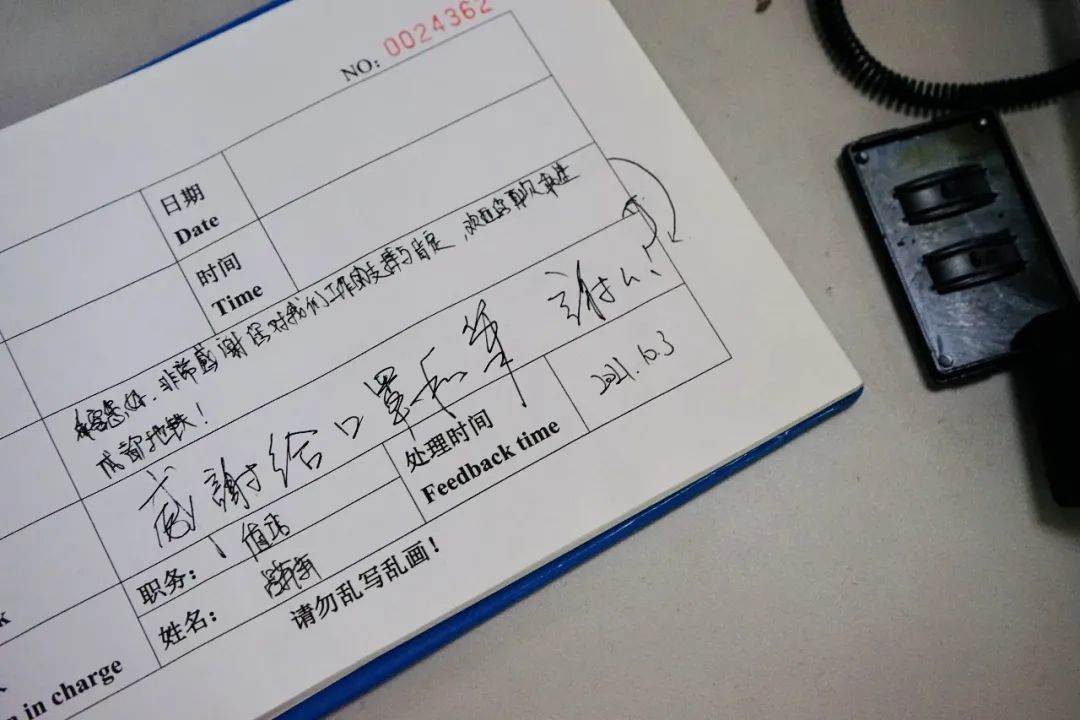 NO: 0024362
日期
Date
时间
Time
您好，非常感谢您对我们工作的支持与肯定，欢迎您再次乘坐
成都地铁！
感謝给口罩和筆 謝谢！
职务： 值站
姓名：
处理时间
Feedback time
2021.10.3
请勿乱写乱画！
in charge